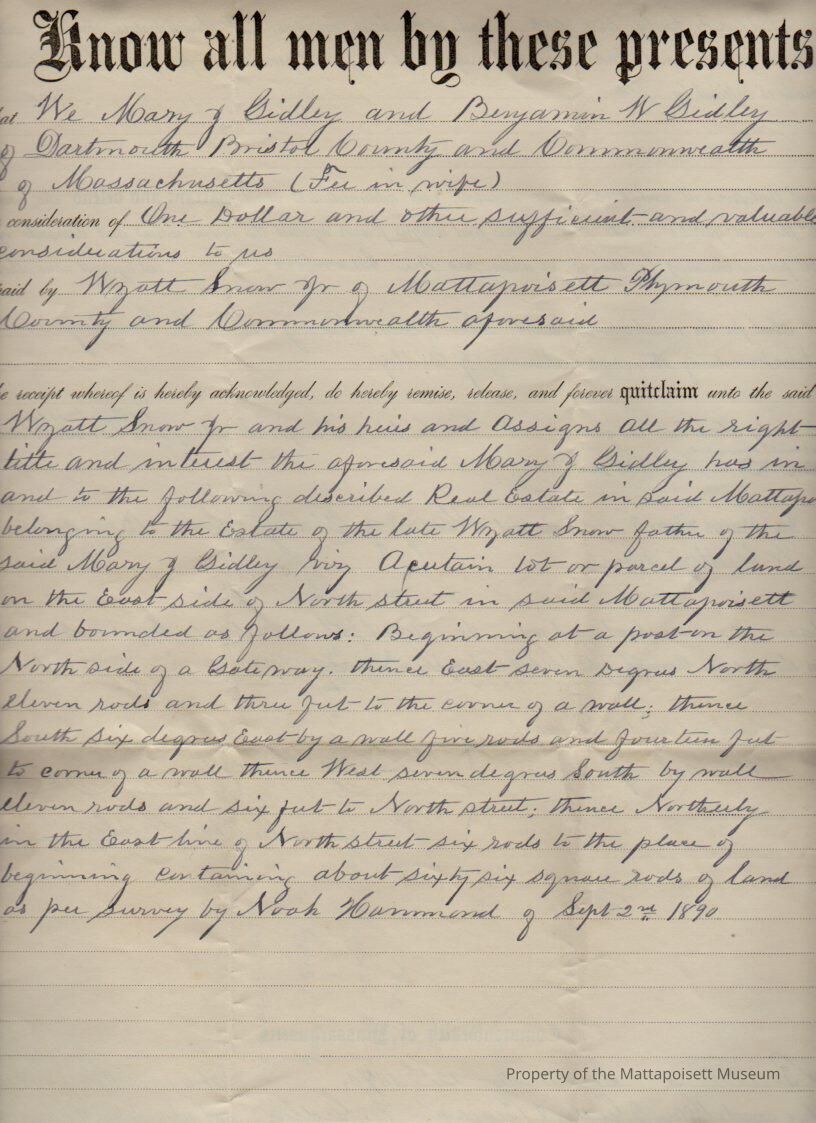 Know all men by these presents
at We Mary J Gidley and Benjamin W Gidley
of Dartmouth Bristol County and Commonwealth
of Massachusetts (Fee in wife)
consideration of One Dollar and other sufficient and valuable
considerations to us
aid by Wyatt Snow Jr of Mattapoisett Plymouth
County and Commonwealth aforesaid
e receipt whereof is hereby acknowledged, do hereby remise, release, and forever quitclaim unto the said
Wyatt Snow Jr and his heirs and Assigns all the right
title and interest the aforesaid Mary J Gidley has in
and to the following described Real Estate in said Mattapo
belonging to the Estate of the late Wyatt Snow father of the
said Mary J Gidley viz A certain lot or parcel of land
on the East side of North street in said Mattapoisett
and bounded as follows: Beginning at a post on the
North side of a Gateway. thence East seven Degrees North
eleven rods and three feet to the corner of a wall; thence
South six degrees East by a wall five rods and fourteen feet
to corner of a wall thence West seven degrees South by wall
eleven rods and six feet to North street; thence Northerly
in the East line of North street six rods to the place of
beginning containing about sixty six square rods of land
as per survey by Noah Hammond of Sept 2nd 1890
Property of the Mattapoisett Museum